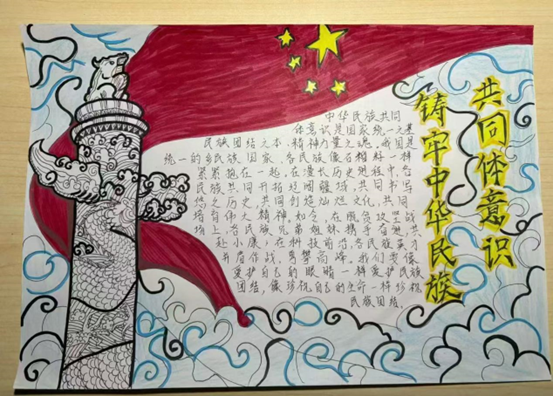 铸牢中华民族
共同体意识
中华民族共同
体意识是国家统一之基
民族团结之本,精神力量之魂,我国是
统一的多民族国家,各民族像石榴籽一样
紧紧抱在一起,在漫长历史进程中,各
民族共同开拓辽阔疆域,共同书写
悠久历史,共同创造灿烂文化,共同
培育伟大精神,如今,在脱贫攻坚战
场上,各民族兄弟姐妹携手奋进,共
赴小康,在科技前沿,各民族英才
并肩作战,勇攀高峰,我们要像
爱护自己的眼睛一样爱护民族
团结,像珍视自己的生命一样珍视
民族团结。